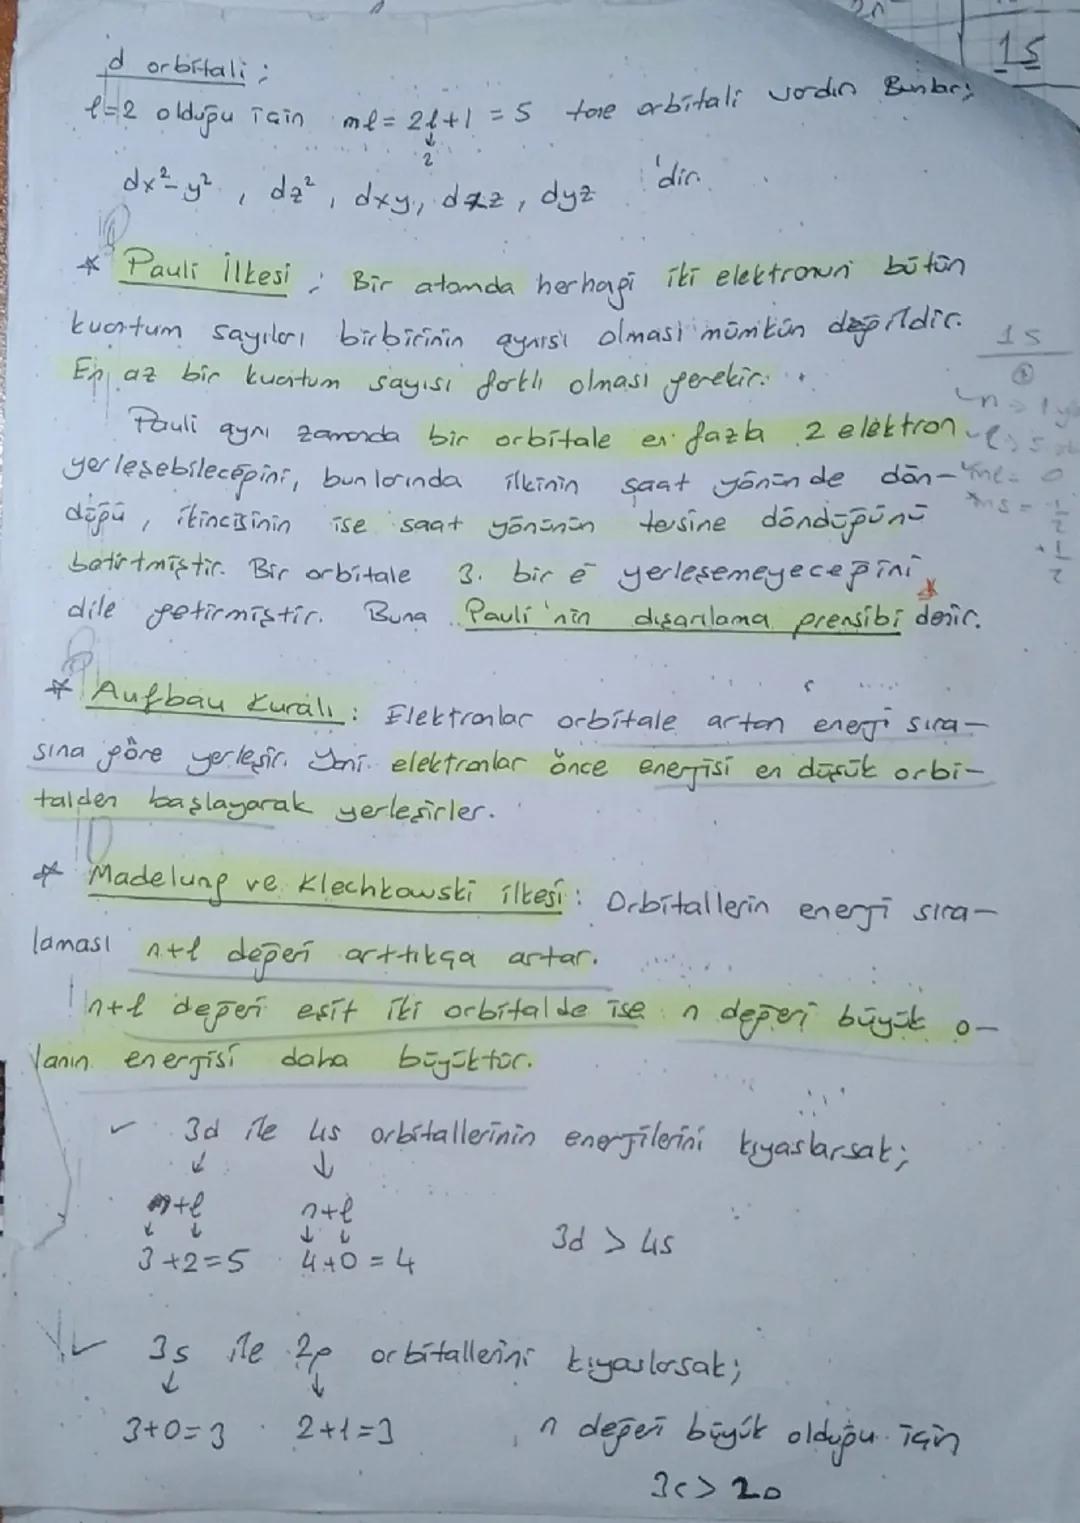 15
d orbitali ;
l=2 olduğu için ml = 2l+1 = 5 tane orbitali vardır. Bunlar;
↓
2
dx²-y² , dz² , dxy, dxz , dyz 'dir.
* Pauli İlkesi ; Bir atomda herhagi iki elektronun bütün
kuantum sayıları birbirinin aynısı olması mümkün değildir.
En az bir kuantum sayısı farklı olması gerekir.
Pauli aynı zamanda bir orbitale en fazla 2 elektron
yerleşebileceğini, bunlarında ilkinin saat yönünde dön-
düğü , ikincisinin ise saat yönünün tersine döndüğünü
belirtmiştir. Bir orbitale 3. bir e⁻ yerleşemeyeceğini
dile getirmiştir. Buna Pauli'nin dışarılama prensibi denir.
1s
ml = 0
ms = -1/2
+1/2
* Aufbau Kuralı : Elektronlar orbitale artan enerji sıra-
sına göre yerleşir. Yani elektronlar önce enerjisi en düşük orbi-
talden başlayarak yerleşirler.
* Madelung ve Klechkowski ilkesi : Orbitallerin enerji sıra-
laması n+l değeri arttıkça artar.
n+l değeri eşit iki orbitalde ise n değeri büyük o-
lanın enerjisi daha büyüktür.
✓ 3d ile 4s orbitallerinin enerjilerini kıyaslarsak;
↓ ↓
n+l n+l
↓ ↓ ↓ ↓
3+2=5 4+0=4 3d > 4s
✓ 3s ile 2p orbitallerini kıyaslarsak;
↓ ↓
3+0=3 2+1=3 n değeri büyük olduğu için
3s > 2p